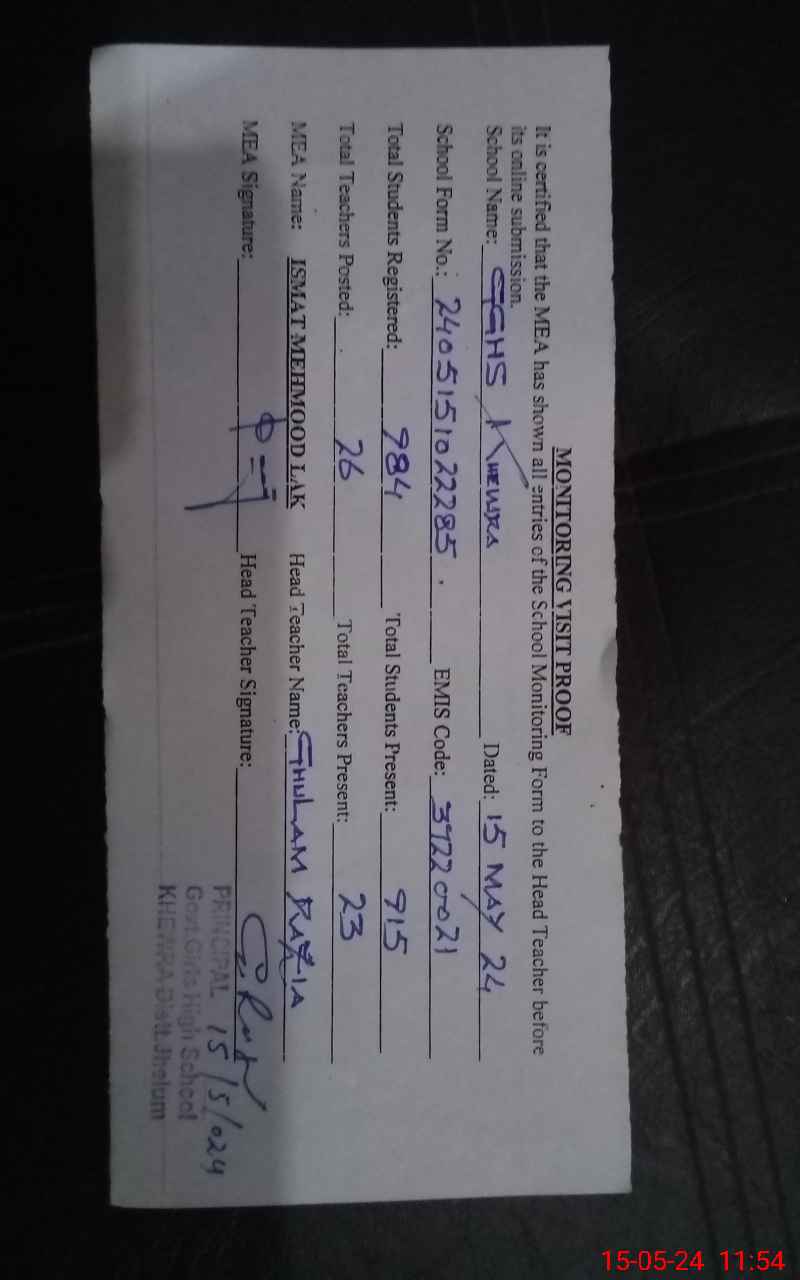 MONITORING VISIT PROOF
It is certified that the MEA has shown all entries of the School Monitoring Form to the Head Teacher before
its online submission.
School Name: GGHS KHEWRA Dated: 15 MAY 24
School Form No.: 2405151022285. EMIS Code: 37220021
Total Students Registered: 984 Total Students Present: 915
Total Teachers Posted: 26 Total Teachers Present: 23
MEA Name: ISMAT MEHMOOD LAK Head Teacher Name: GHULAM RUQIA
MEA Signature: Head Teacher Signature:
PRINCIPAL 15/5/024
Govt.Girls High School
KHEWRA Distt.Jhelum
15-05-24 11:54